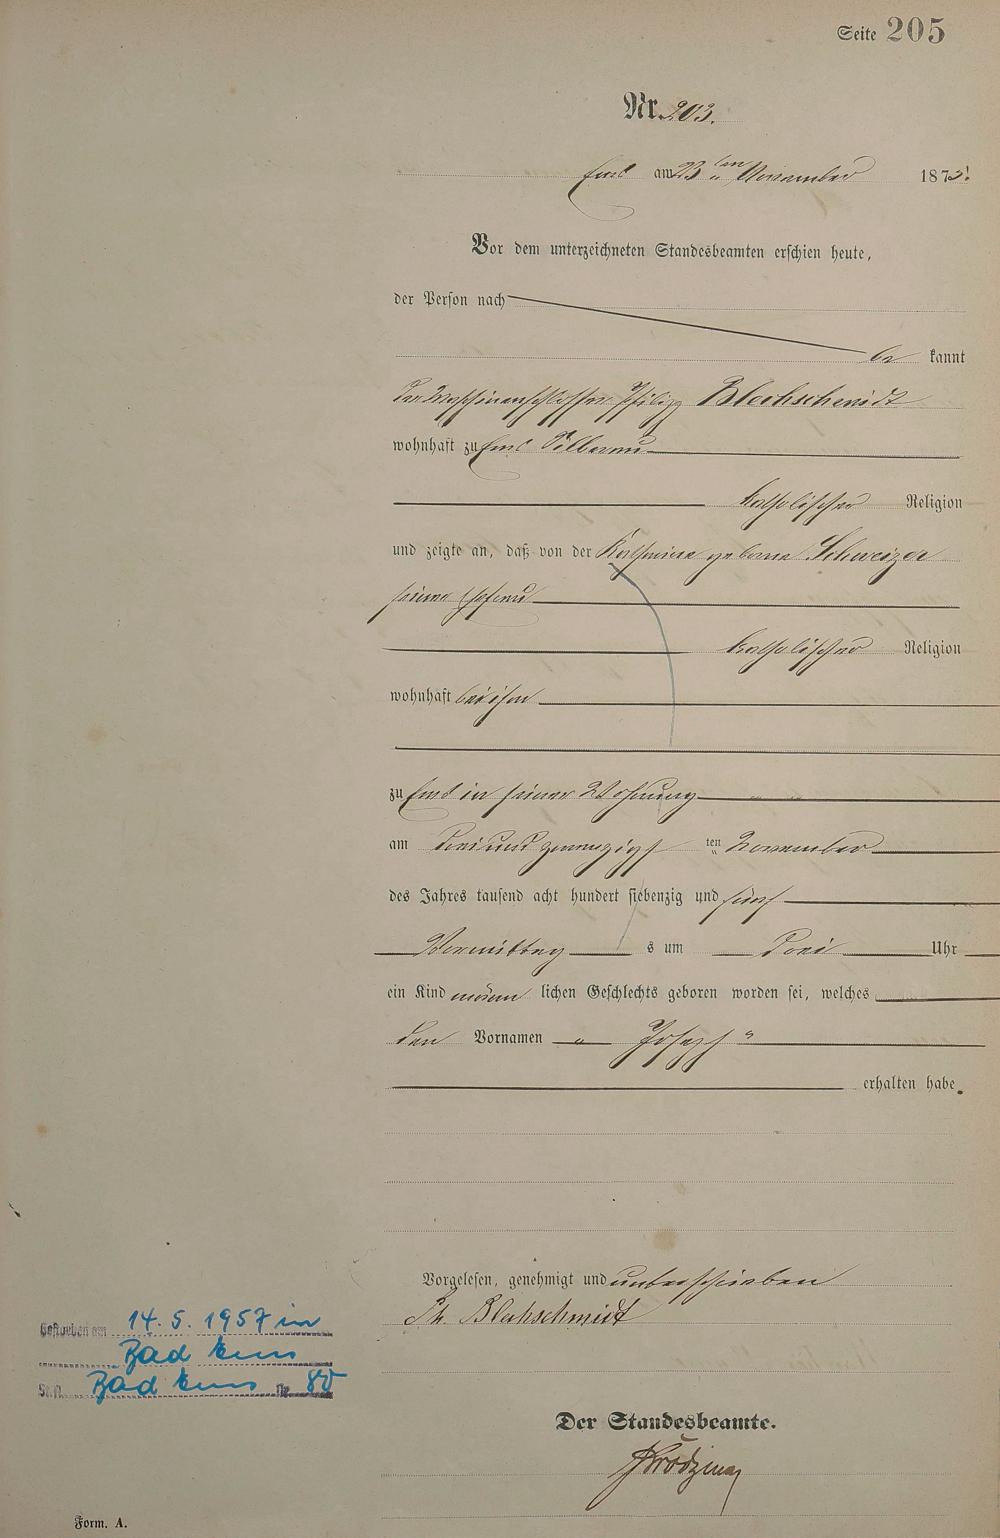 Seite 205
Nr. 203.
Ems am 23 ten November 1875
Vor dem unterzeichneten Standesbeamten erschien heute,
der Person nach
be kannt
der Maschinenschlosser Philipp Blechschmidt
wohnhaft zu Ems
katholischer Religion
und zeigte an, daß von der Katharina geborne Schweizer
seiner Ehefrau
katholischer Religion
wohnhaft bei ihm
zu Ems in seiner Wohnung
am drei und zwanzigs ten November
des Jahres tausend acht hundert siebenzig und fünf
Vormittag s um drei Uhr
ein Kind männ lichen Geschlechts geboren worden sei, welches
den Vornamen " Joseph "
erhalten habe.
Vorgelesen, genehmigt und unterschrieben
Ph. Blechschmidt
Gestorben am 14. 5. 1957 in
Bad Ems
St.A. Bad Ems Nr. 80
Der Standesbeamte.
Form. A.